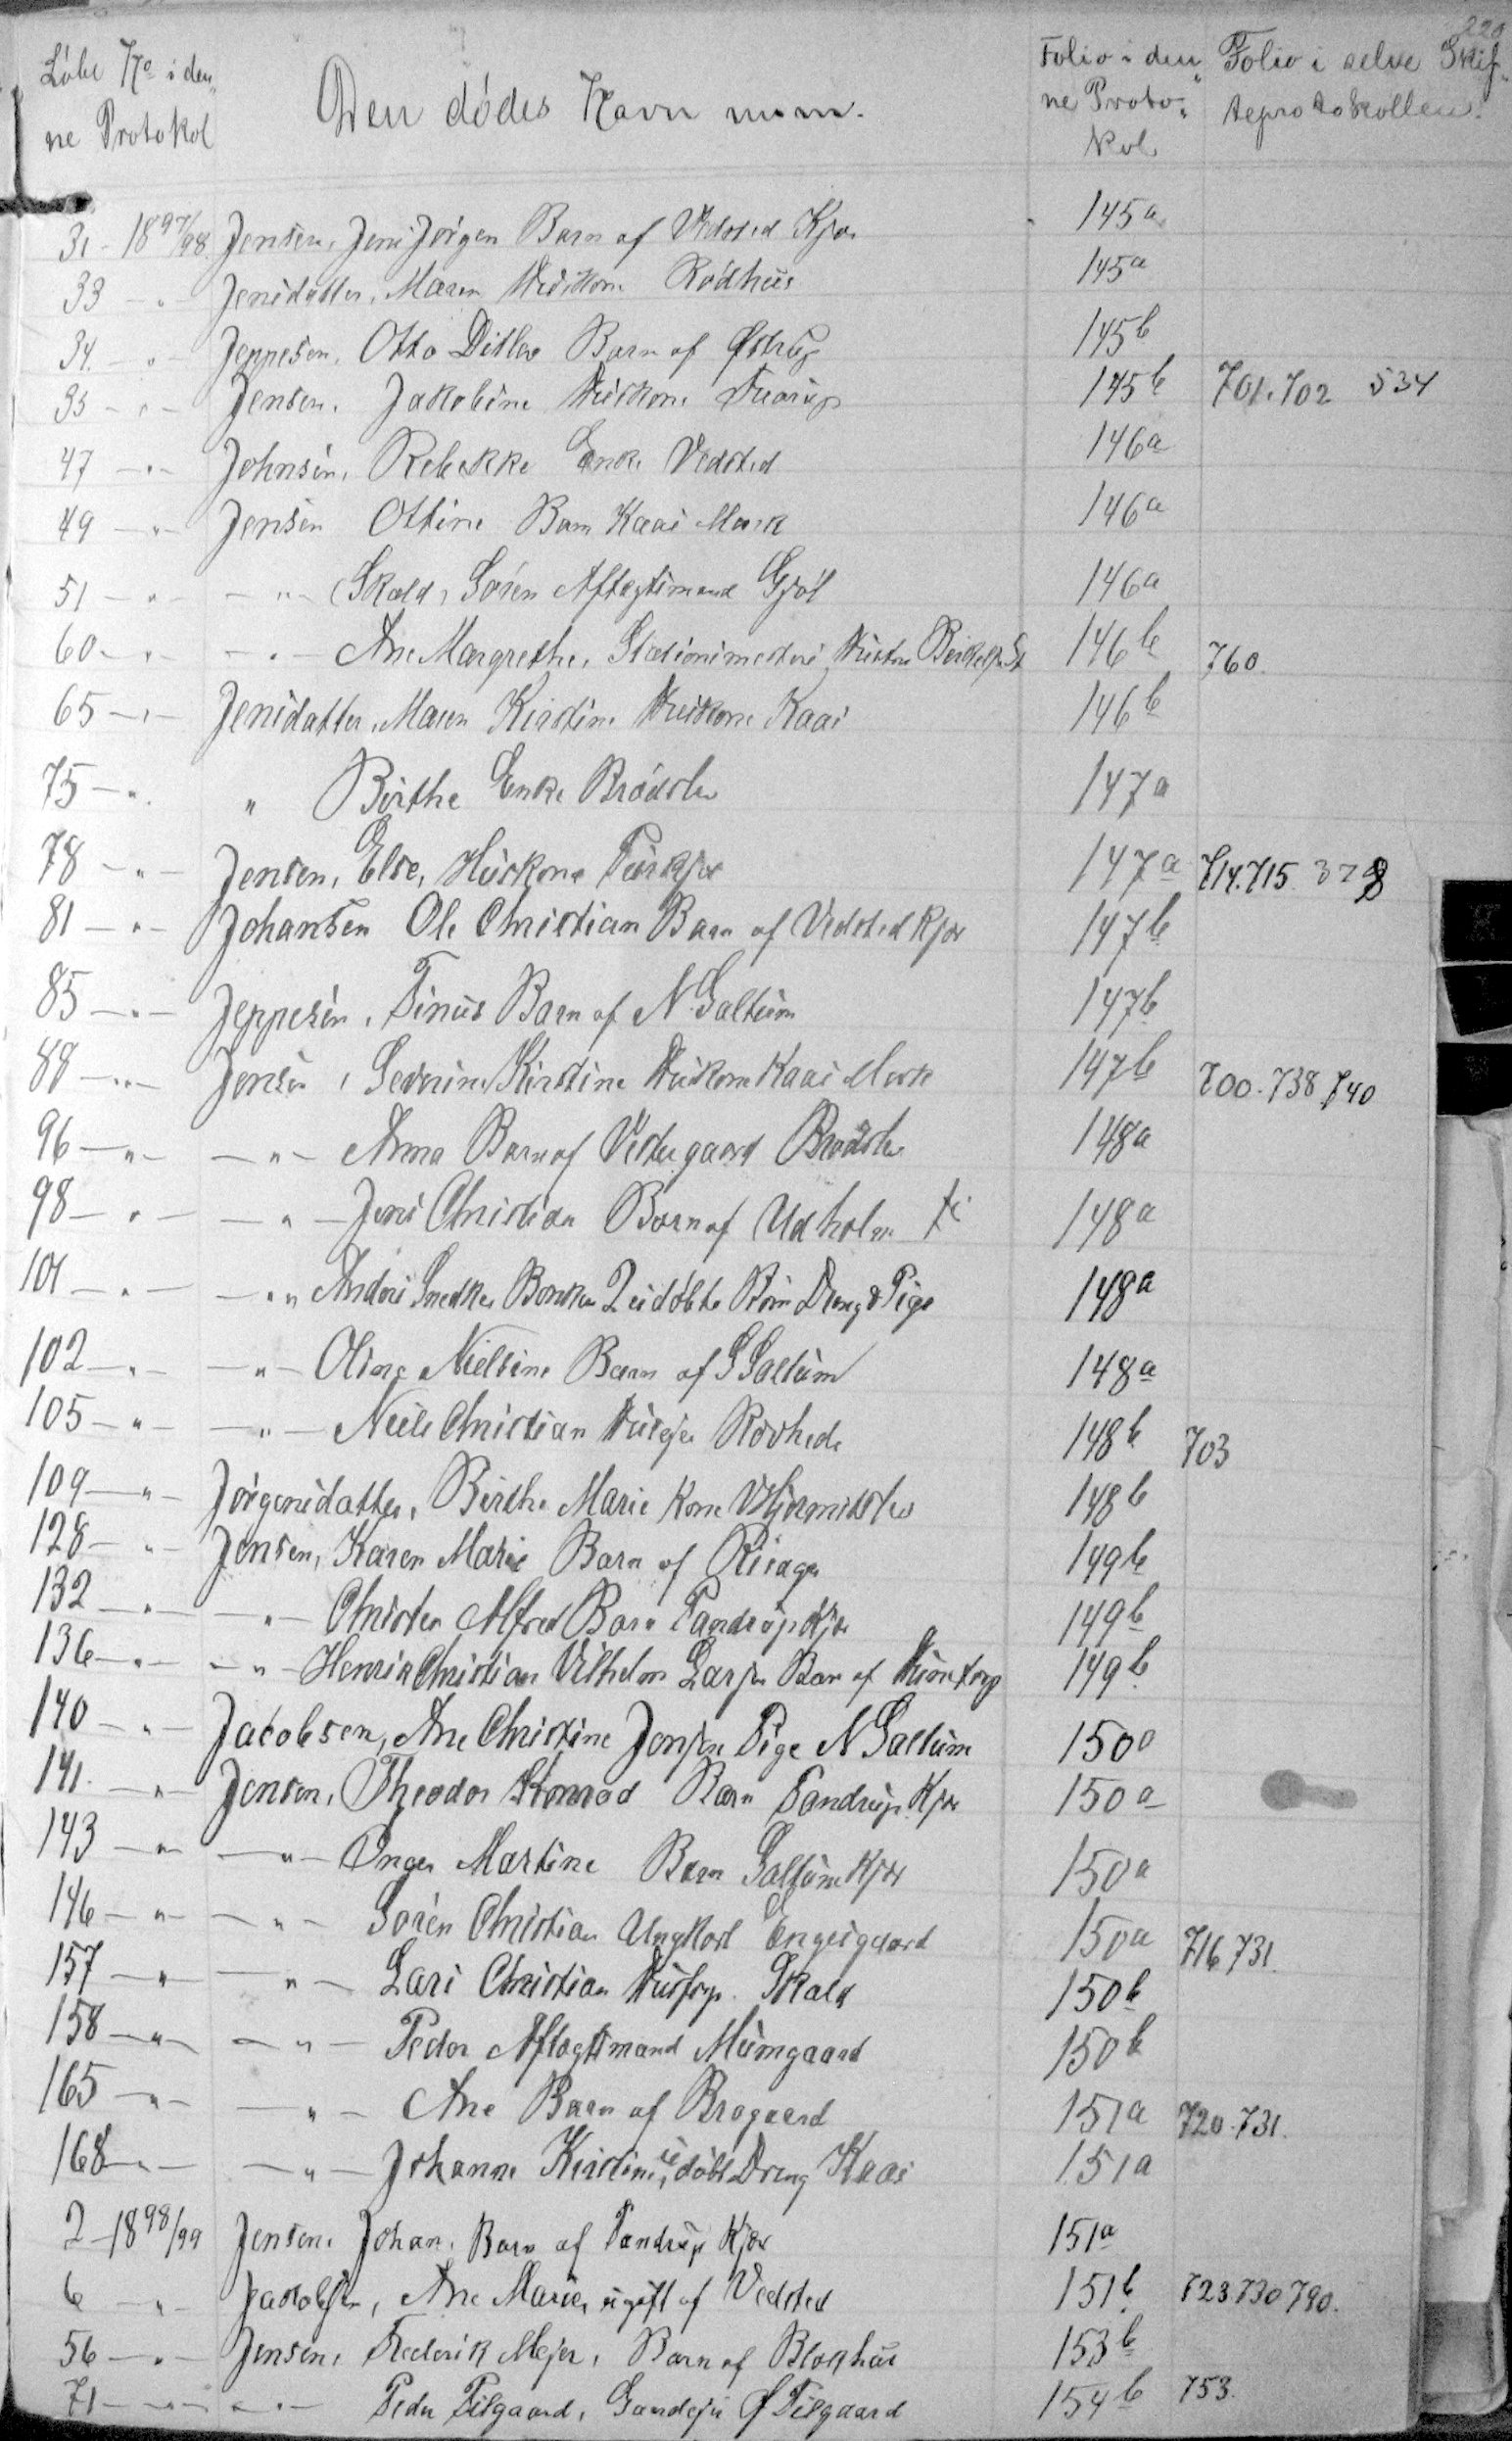 220
Löbe No i den- Den dödes Navn m.m. Folio i den- Folio i selve Skif-
ne Protokol ne Proto- teprotokollen.
kol
31 - 1897/98 Jensen, Jens Jörgen Barn af Vedsted Kjær 145a
33 - " - Jensdatter, Maren Huskone Rödhus 145a
34 - " - Jeppesen, Otto Ditlev Barn af Østrup 145b
35 - " - Jensen, Jakobine Huskone 145b 701.702 534
47 - " - Johnsen, Rebekke Enke Vedsted 146a
49 - " - Jensen Ottine Barn Kaas Mark 146a
51 - " - - " - Skald, Sören Aftægtsmand Gjöl 146a
60 - " - - " - Ane Margrethe, Stationsmesters Hustru Birkelse St 146b 760.
65 - " - Jensdatter, Maren Kirstine Huskone Kaas 146b
75 - " " Birthe Enke Brödslev 147a
78 - " - Jensen, Else, Huskone 147a 714.715. 328
81 - " - Johansen Ole Christian Barn af Vedsted Kjær 147b
85 - " - Jeppesen, Tinus Barn af N. Saltum 147b
88 - " - Jensen, Severine Kirstine Huskone Kaas Mark 147b 700.738 740
96 - " - - " - Anna Barn af Vestergaard Brödslev 148a
98 - " - - " - Jens Christian Barn af Udholm 148a
101 - " - - " Anders Snedker 2 udöbte Börn Dreng & Pige 148a
102 - " - - " - Oline Nielsine Barn af S Saltum 148a
105 - " - - " - Niels Christian Husejer Rövhede 148b 703
109 - " - Jörgensdatter, Birthe Marie Kone V Hjermitslev 148b
128 - " - Jensen, Karen Marie Barn af 149b
132 - " - - " - Christen Alfred Barn Pandrup Kjær 149b
136 - " - - " - Henrik Christian Vilhelm Larsen Barn af 149b
140 - " - Jacobsen, Ane Christine Jensen Pige N Saltum 150a
141. - " - Jensen, Theodor Konrad Barn Pandrup Kjær 150a
143 - " - - " - Inger Martine Barn Saltum Kjær 150a
146 - " - - " - Sören Christian Ungkarl Engesgaard 150a 716.731.
157 - " - - " - Lars Christian Skald 150b
158 - " - - " - Peder Aftægtsmand 150b
165 - " - - " - Ane Barn af Brogaard 151a 720.731.
168 - " - - " - Johanne Kirstines udöbt Dreng Kaas 151a
2 - 1898/99 Jensen, Johan. Barn af Pandrup Kjær 151a
6 - " - Jakobsen, Ane Marie, ugift af Vedsted 151b 723 730 790.
56 - " - Jensen, Frederik Mejer, Barn af Blokhus 153b
71 - " - - " - Peder Filgaard, Gaardejer af Filgaard 154b 753.